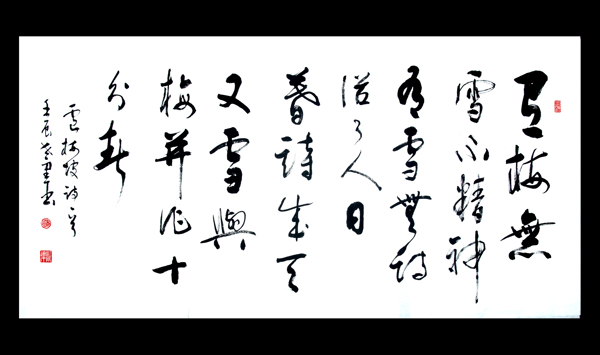 有梅無
雪不精神
有雪無詩
俗了人日
暮詩成天
又雪與
梅并作十
分春
盧梅坡詩
壬辰